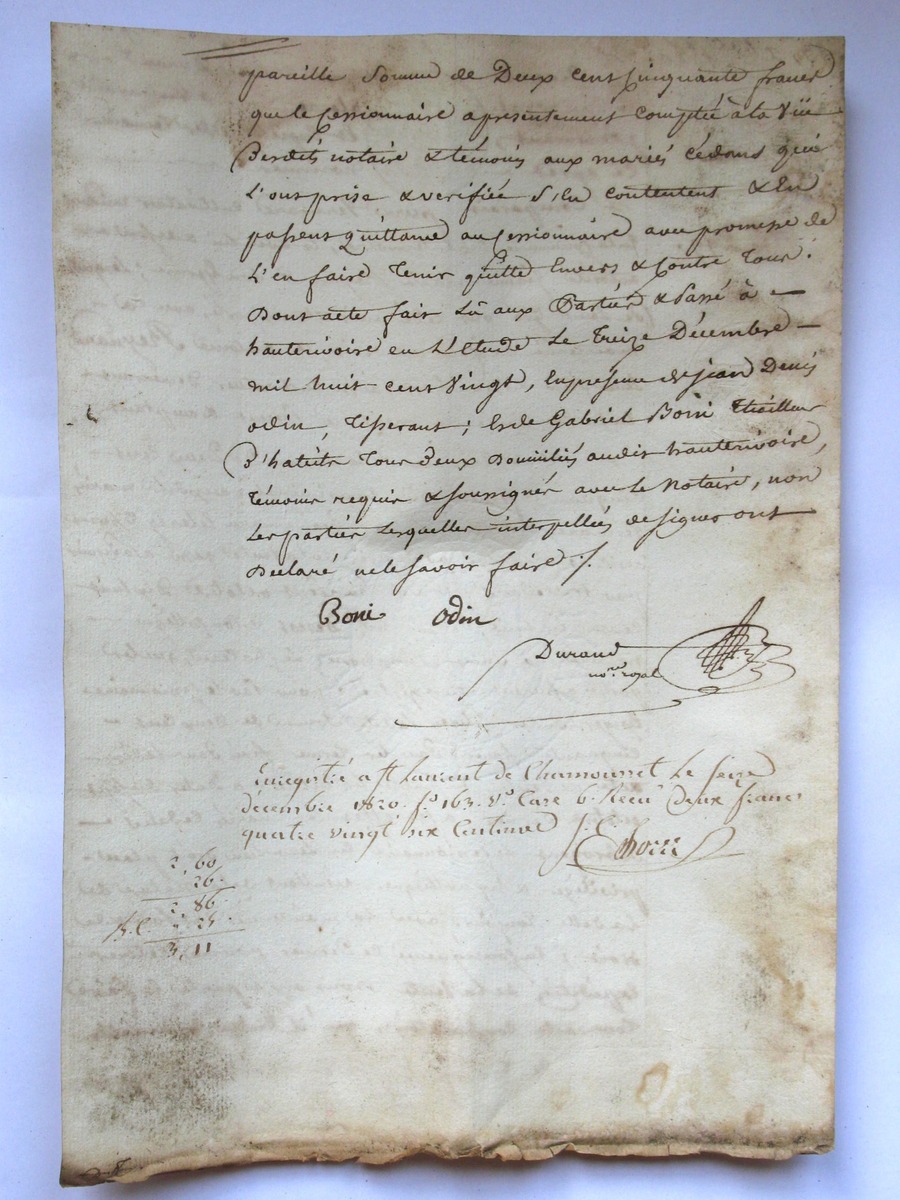 pareille somme de Deux cent cinquante francs
que le cessionnaire a presentement comptée à la vüe
Desdits notaire & témoins aux mariés cédans qui
L'ont prise & verifiée s'En contentent & En
passent quittance au cessionnaire avec promesse de
L'en faire tenir quitte Envers & Contre tous.
Dont acte fait Lû aux Parties & Passé à
hauterivoire en L'étude Le treize Décembre
mil huit cent vingt, En présence de jean Denis
odin, tisserant; & de Gabriel Boni tailleur
D'habits tous deux Domiciliés audit hauterivoire,
témoins requis & soussignés avec le Notaire, non
Les parties Lesquelles interpellées de signer ont
Déclaré ne le savoir faire ./.
Boni Odin
Durand
no.re royal
Enregistré a St Laurent de Chamousset Le seize
décembre 1820. fo. 163. Vo. Case 6. Recu deux francs
quatre vingt six Centimes
2,60
26.
2 86.
25.
3,11